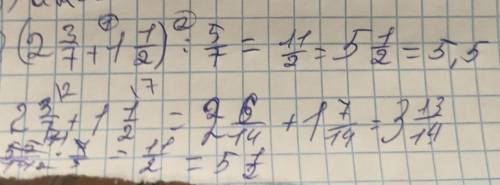 (2 3/7 + 1 1/2) : 5/7 = 11/2 = 5 1/2 = 5,5
2 3/7 + 1 1/2 = 2 6/14 + 1 7/14 = 3 13/14
= 11/2 = 5 1/2